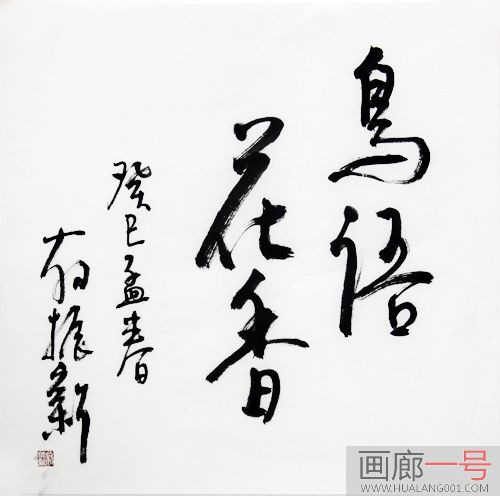 鳥語
花香
癸巳孟春
翁振新
画廊一号
WWW.HUALANG001.COM